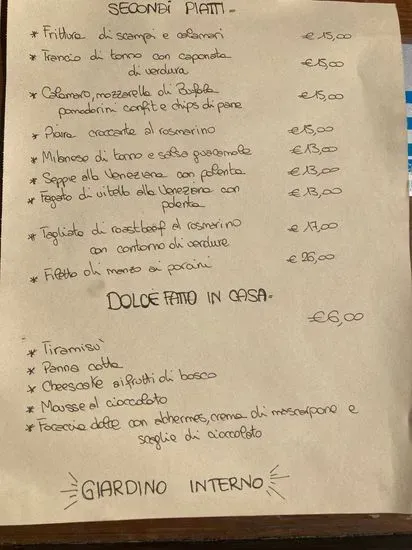 SECONDI PIATTI-
* Frittura di scampi e calamari €15,00
* Trancio di tonno con caponata €15,00
di verdura
* Calamaro, mozzarella di Bufala €15,00
pomodorini confit e chips di pane
* croccante al rosmarino €15,00
* Milanese di tonno e salsa guacamole €13,00
* Seppie alla Veneziana con polenta €13,00
* Fegato di vitello alla Veneziana con €13,00
polenta
* Tagliata di roastbeef al rosmarino €17,00
con contorno di verdure
* Filetto di manzo ai porcini €26,00
DOLCE FATTO IN CASA-
€6,00
* Tiramisù
* Panna cotta
* Cheescake ai frutti di bosco
* Mousse al cioccolato
* Focaccia dolce con alchermes, crema di mascarpone e
scaglie di cioccolato
GIARDINO INTERNO